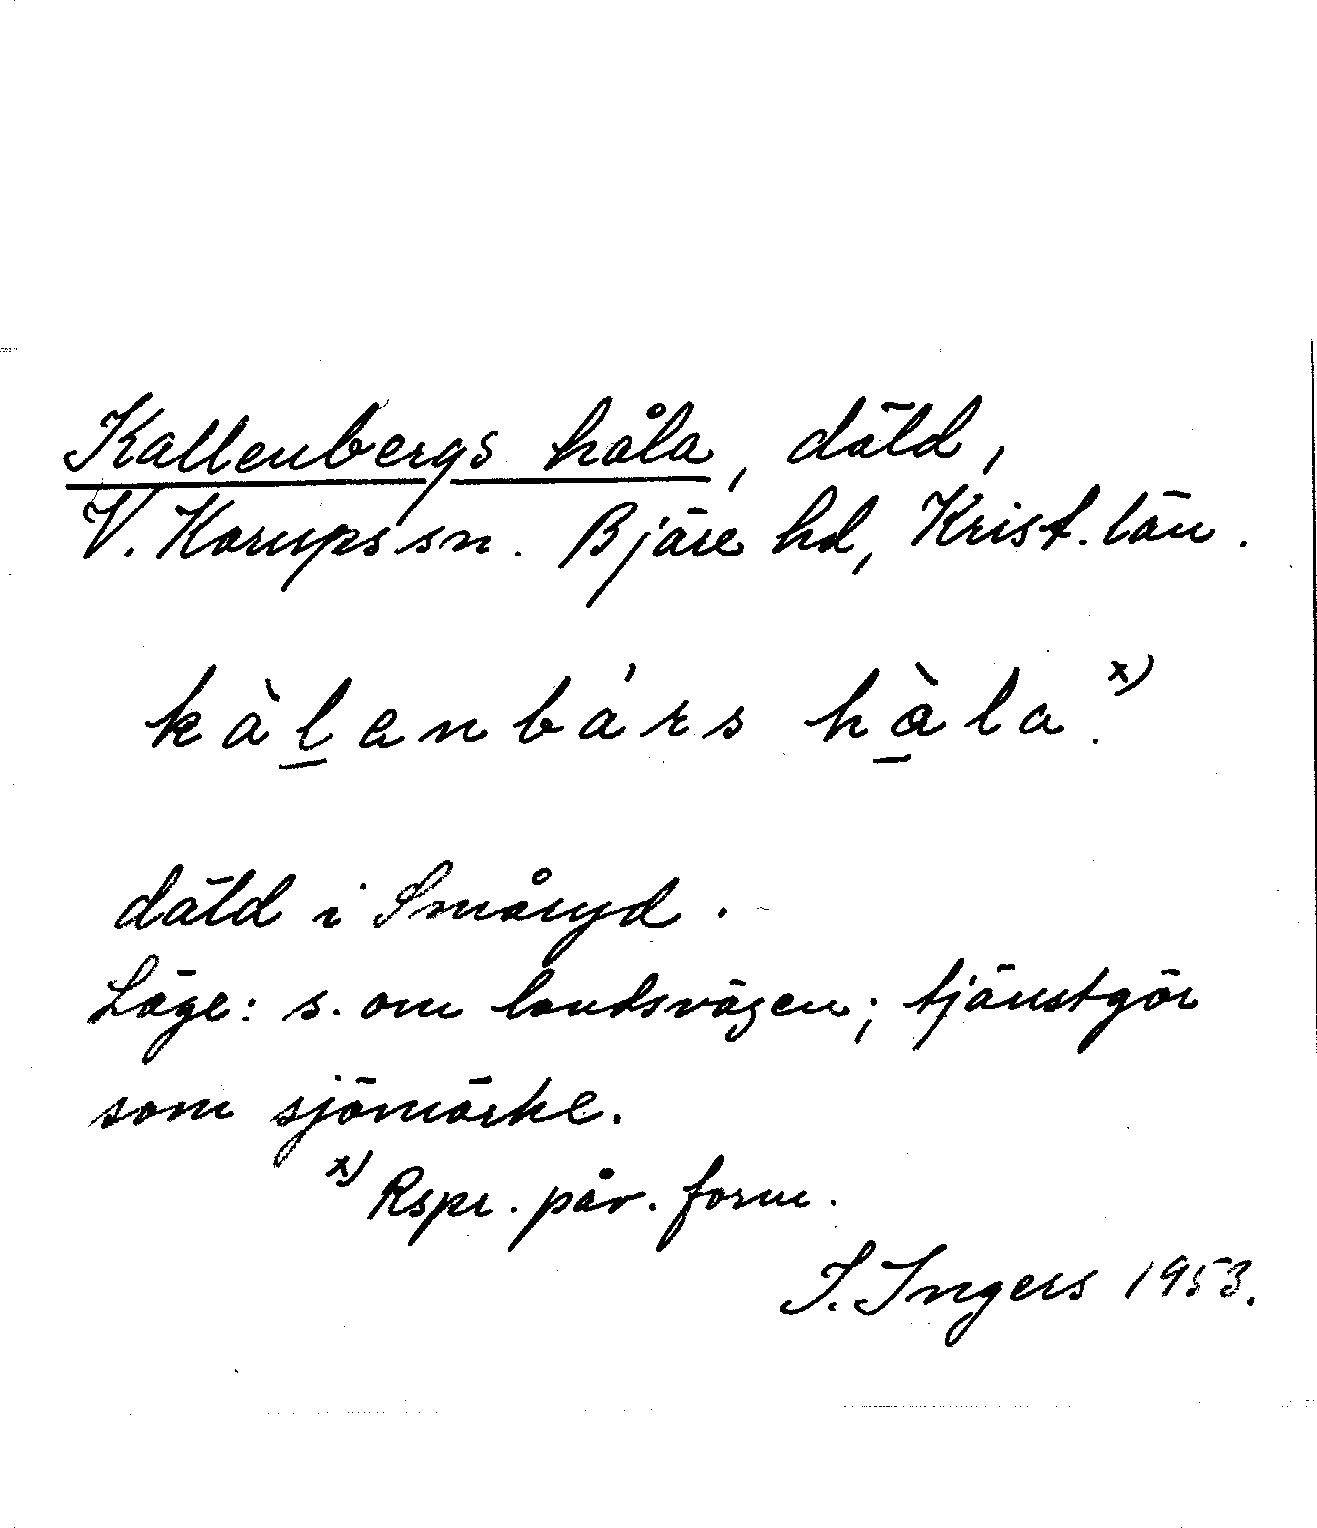 Kallenbergs håla, däld,
V. Karups sn. Bjäre hd, Krist. län.
kàl̲anbárs hà̲la.x)
däld i Småryd.
Läge: s. om landsvägen; tjänstgör
som sjömärke.
x) Rspr. påv. form.
I. Ingers 1953.